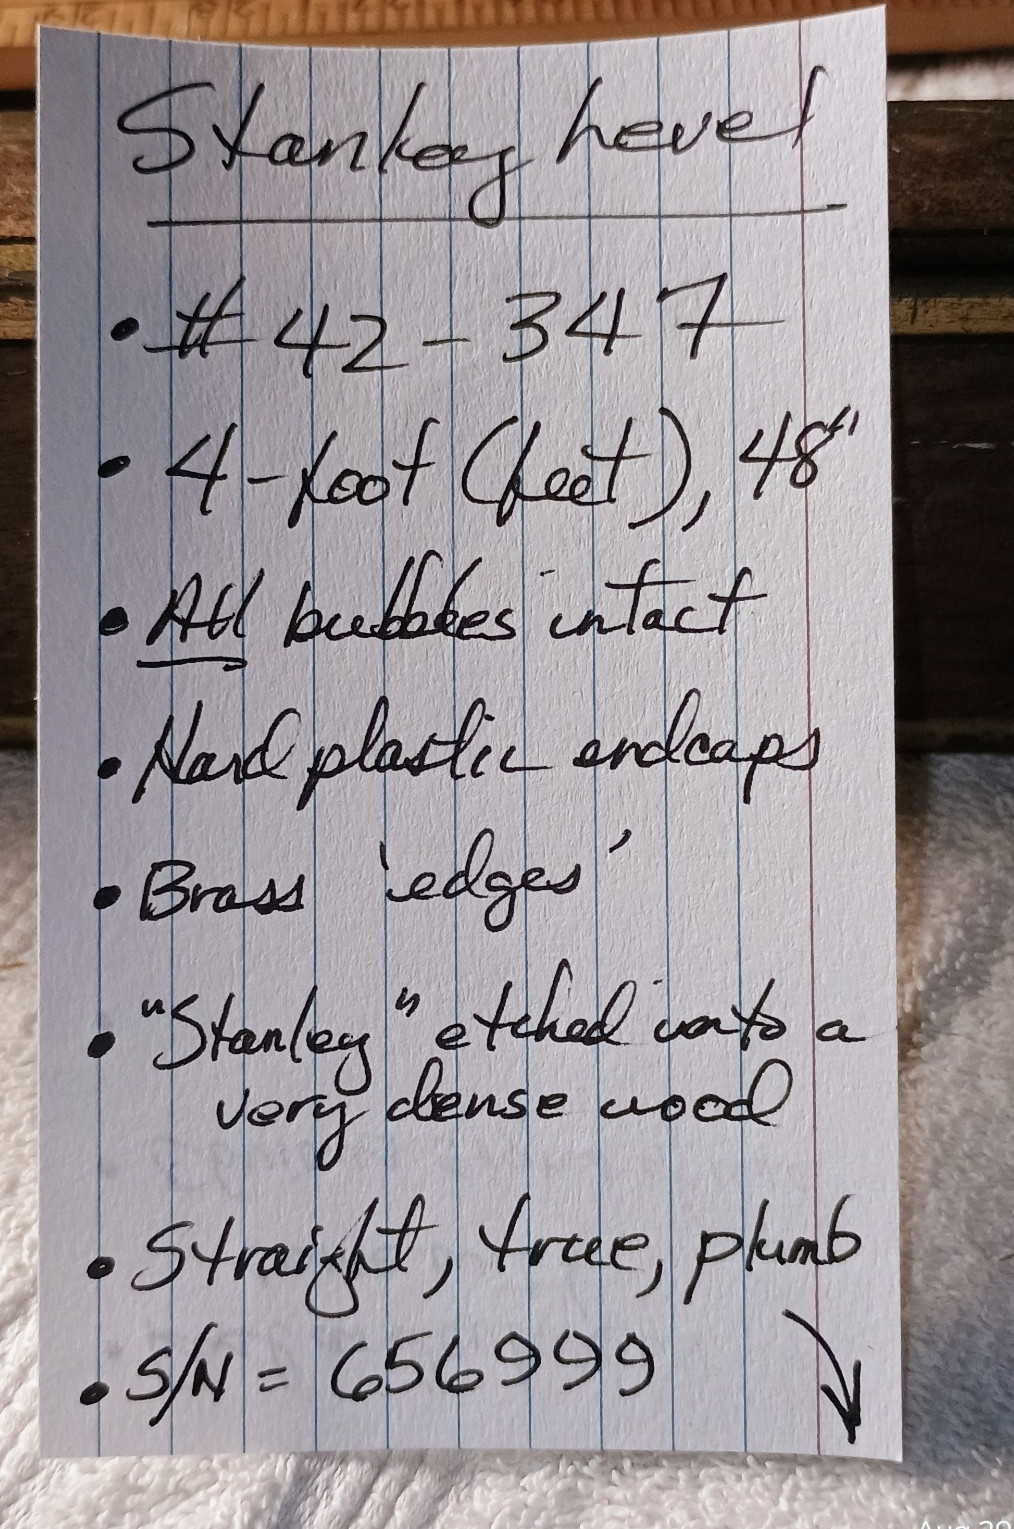 Stanley Level
• # 42-347
• 4-foot (feet), 48"
• All bubbles intact
• Hard plastic endcaps
• Brass 'edges'
• "Stanley" etched into a
very dense wood
• Straight, true, plumb
• S/N = 656999